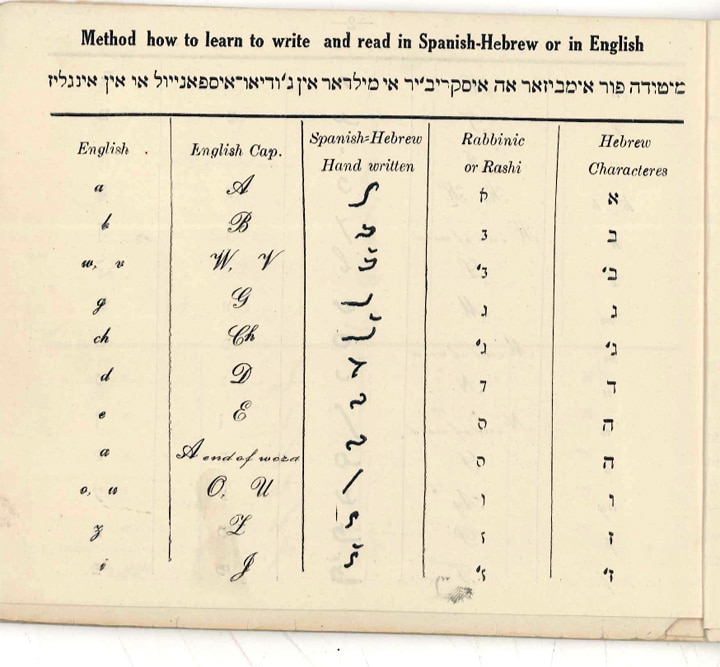 Method how to learn to write and read in Spanish-Hebrew or in English
מיטודה פור אימביזאר אה איסקריב'יר אי מילדאר אין ג'ודיאו־איספאנייול או אין אינגליז
English . English Cap. Spanish=Hebrew Hand written Rabbinic or Rashi Hebrew Characteres
a A א א
b B ב ב
w, v W, V ב' ב'
g G ג ג
ch Ch ג' ג'
d D ד ד
e E ה ה
a A end of word ה ה
o, u O, U ו ו
z Z ז ז
J ז' ז'